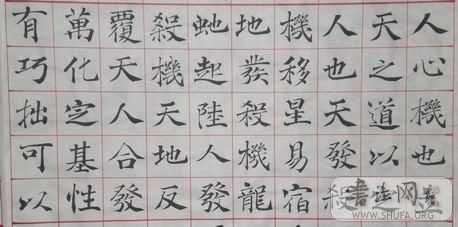 人心機也
天之道以
人也天發殺
機移星易宿
地發殺機龍
虵起陸人發
殺機天地反
覆天人合發
萬化定基性
有巧拙可以
WWW.SHUFA.ORG